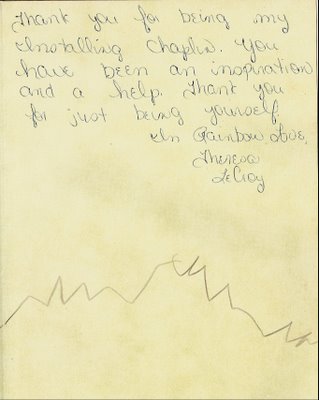 Thank you for being my
Installing Chaplin. You
have been an inspiration
and a help. Thank you
for just being yourself
In Rainbow Love,
Theresa
LeCroy